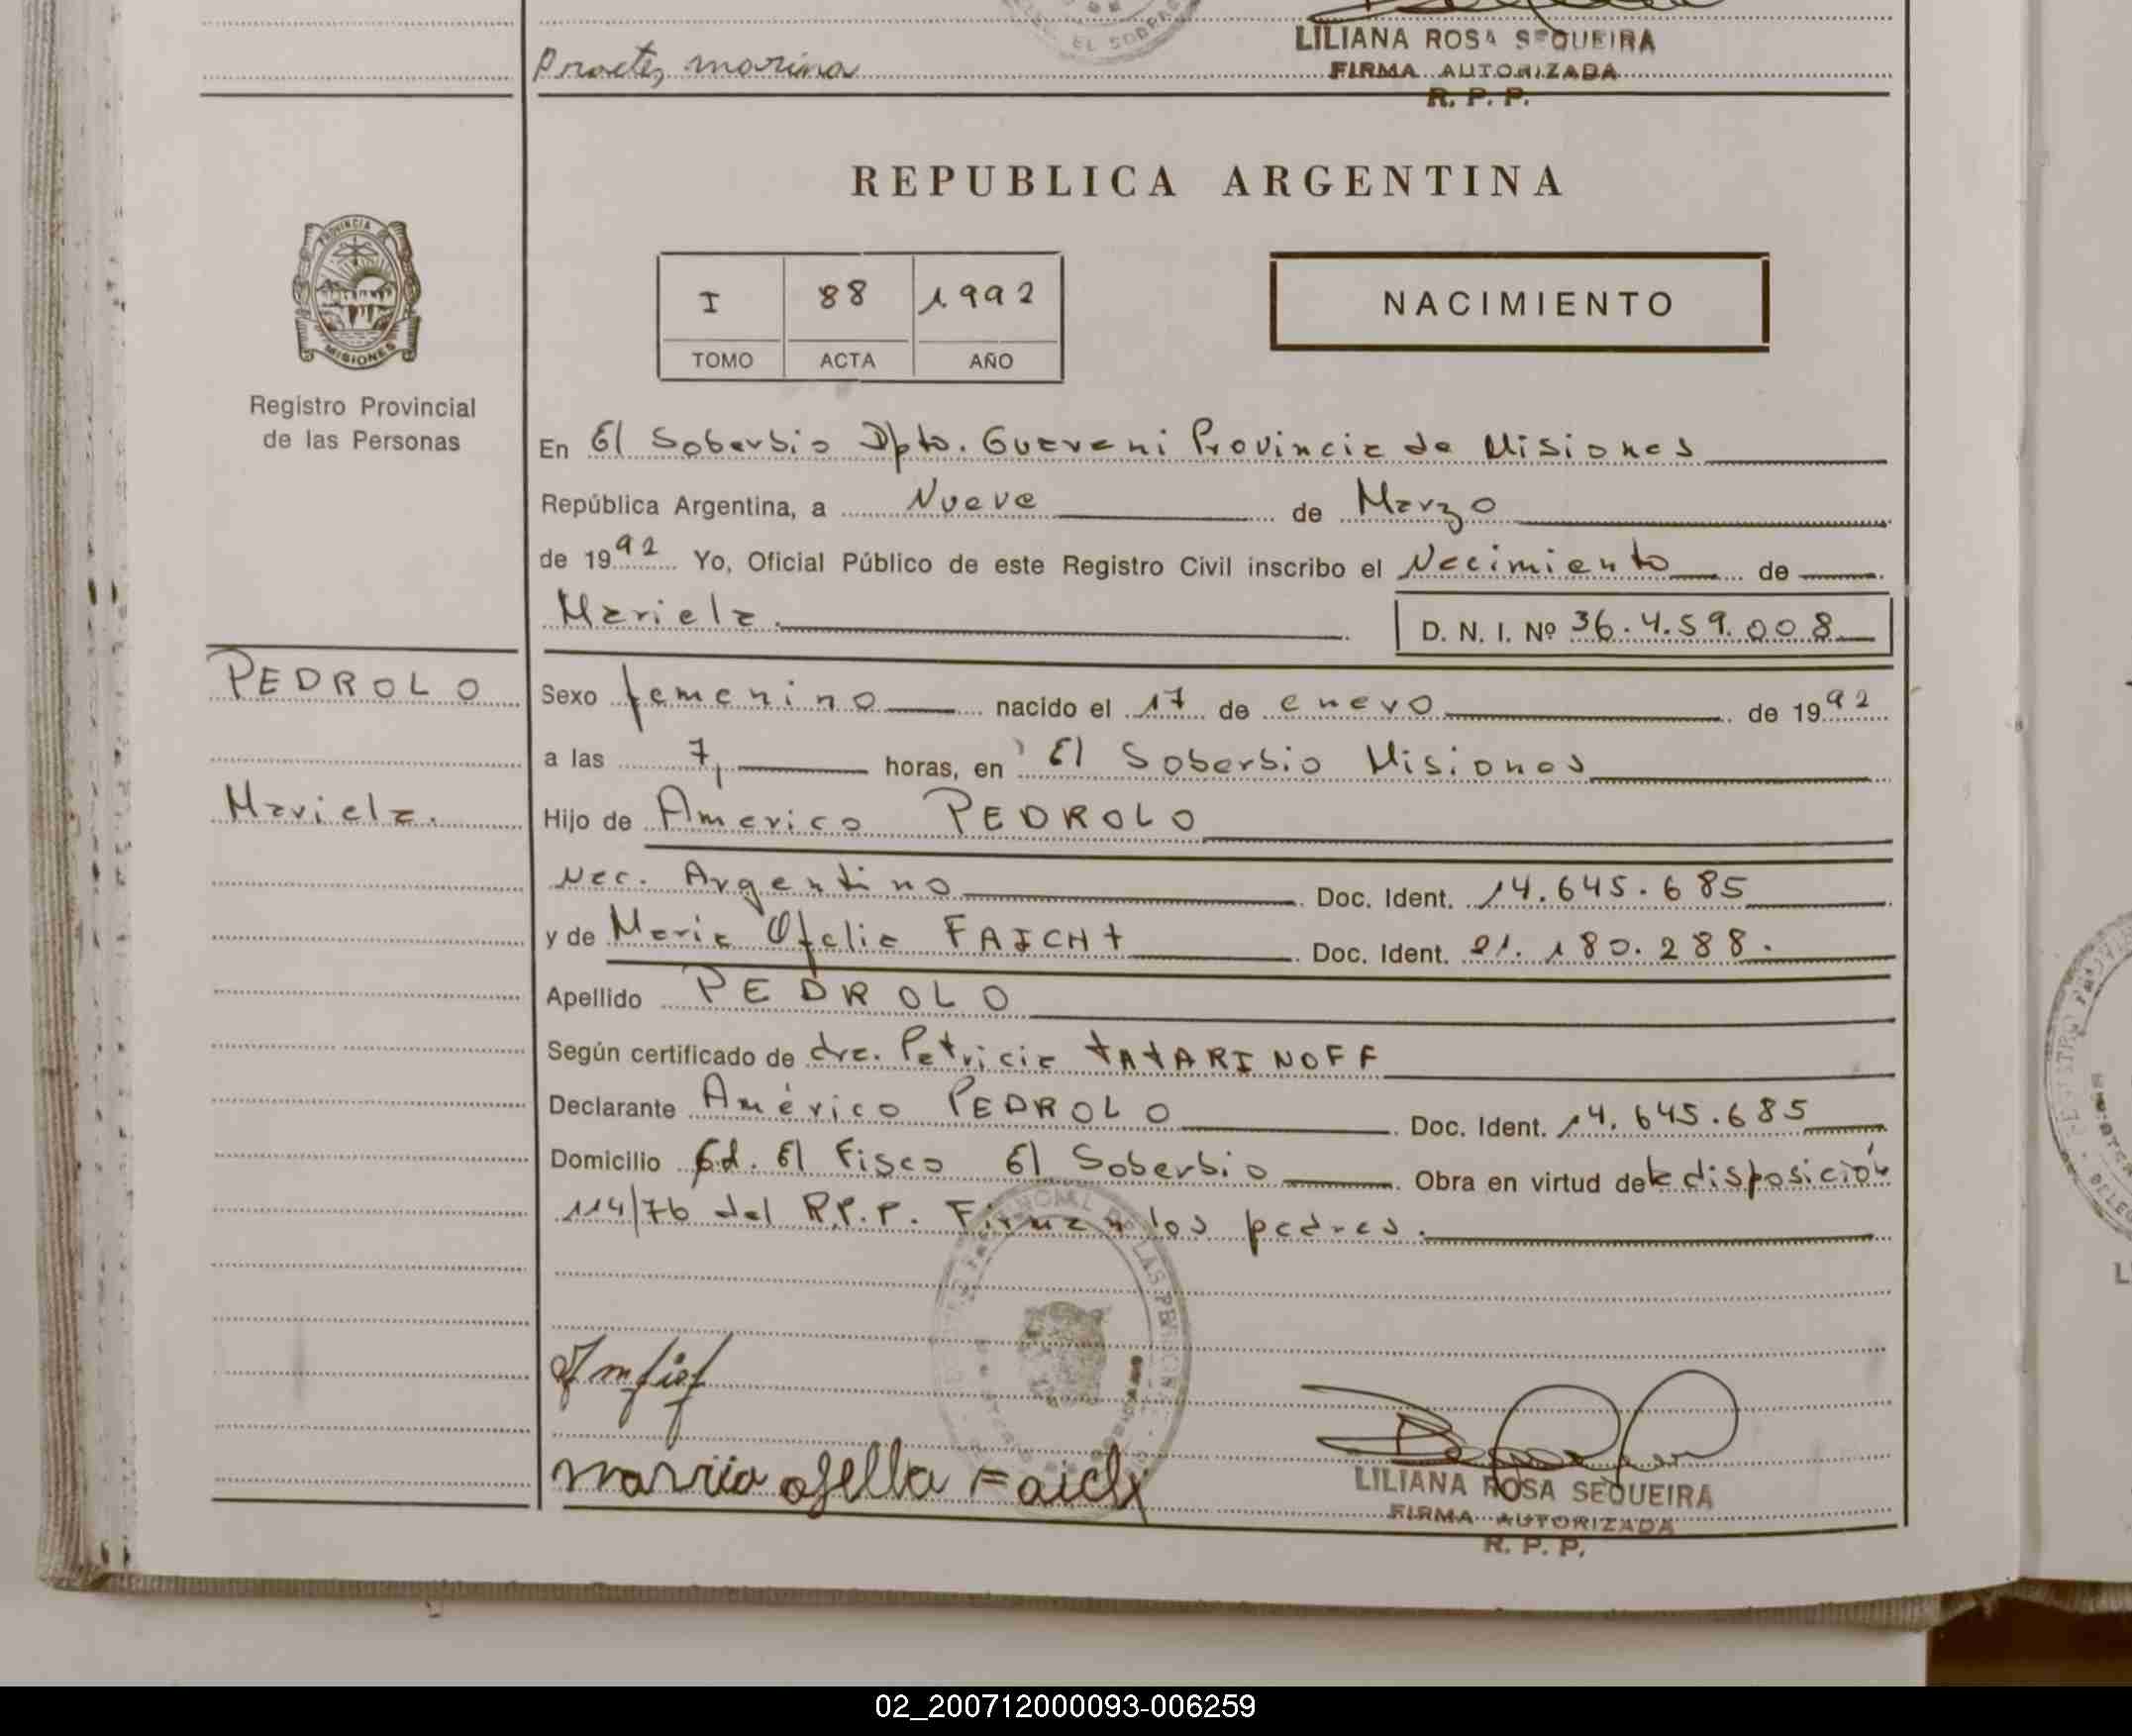 EL SOBER
LILIANA ROSA SEQUEIRA
marina
FIRMA AUTORIZADA
R. P. P.
REPUBLICA ARGENTINA
PROVINCIA DE
MISIONES
I 88 1992
TOMO ACTA AÑO
NACIMIENTO
Registro Provincial
de las Personas
En El Soberbio Dpto. Guarani Provincia de Misiones
República Argentina, a Nueve de Marzo
de 1992 Yo, Oficial Público de este Registro Civil inscribo el Nacimiento de
Mariela.
D. N. I. Nº 36.459.008
PEDROLO
Sexo femenino nacido el 17 de enero de 1992
a las 7, horas, en El Soberbio Misiones
Mariela.
Hijo de Americo PEDROLO
Nac. Argentino Doc. Ident. 14.645.685
y de Maria Ofelia FAICHt Doc. Ident. 21.180.288.
Apellido PEDROLO
Según certificado de dra. Patricia tAtARINOFF
Declarante Américo PEDROLO Doc. Ident. 14.645.685
Domicilio Cd. El Fisco El Soberbio Obra en virtud de la disposición
114/76 del R.P.P. Firman los padres.
marria ofella Faicht
LILIANA ROSA SEQUEIRA
FIRMA AUTORIZADA
R. P. P.
02_200712000093-006259